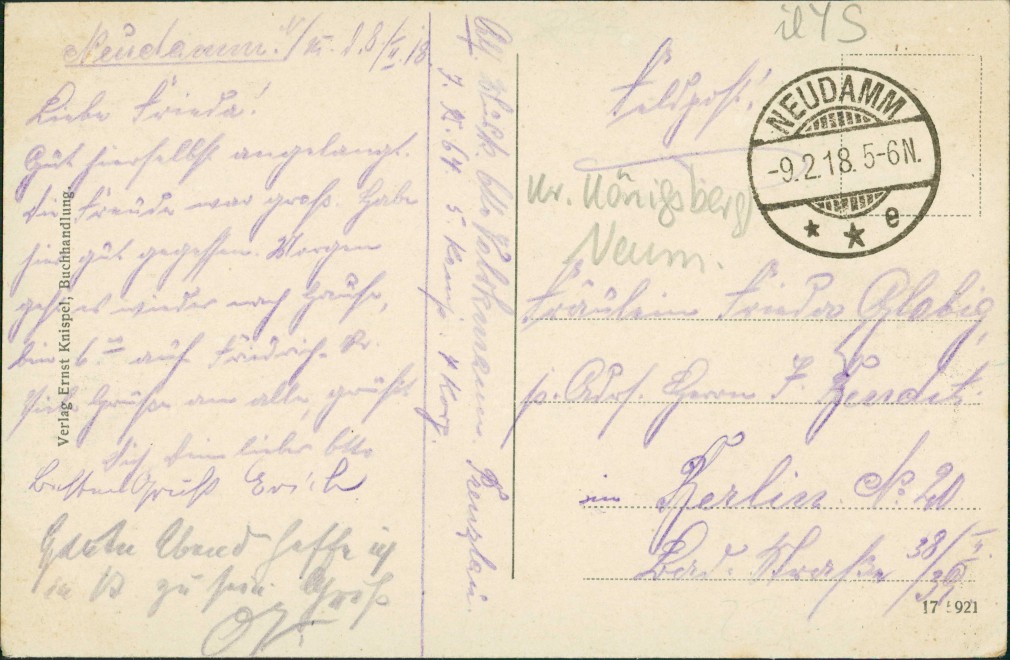 Neudamm. 8/II. 18.
Liebe Frieda!
Gut hierselbst angelangt.
Die Freude war groß. Habe
hier gut gegessen. Morgen
geht es wieder nach Hause,
bin 6 auf Friedrich Str.
Viele Grüße an alle, grüßt
Dich Dein lieber Otto
Besten Gruß Erich
Abend hoffe ich
zu sein Gruß
Otto
J. R. 64. 5 Komp. 4 Korp.
Prenzlau.
Verlag Ernst Knispel, Buchhandlung.
Feldpost!
NEUDAMM
-9.2.18. 5-6N.
* * e
Kr. Königsberg
Neum.
Fräulein Frieda Glabig,
p. Adr. Herrn F.
in Berlin No 20
Bad-Straße 38/39 II.
17 921